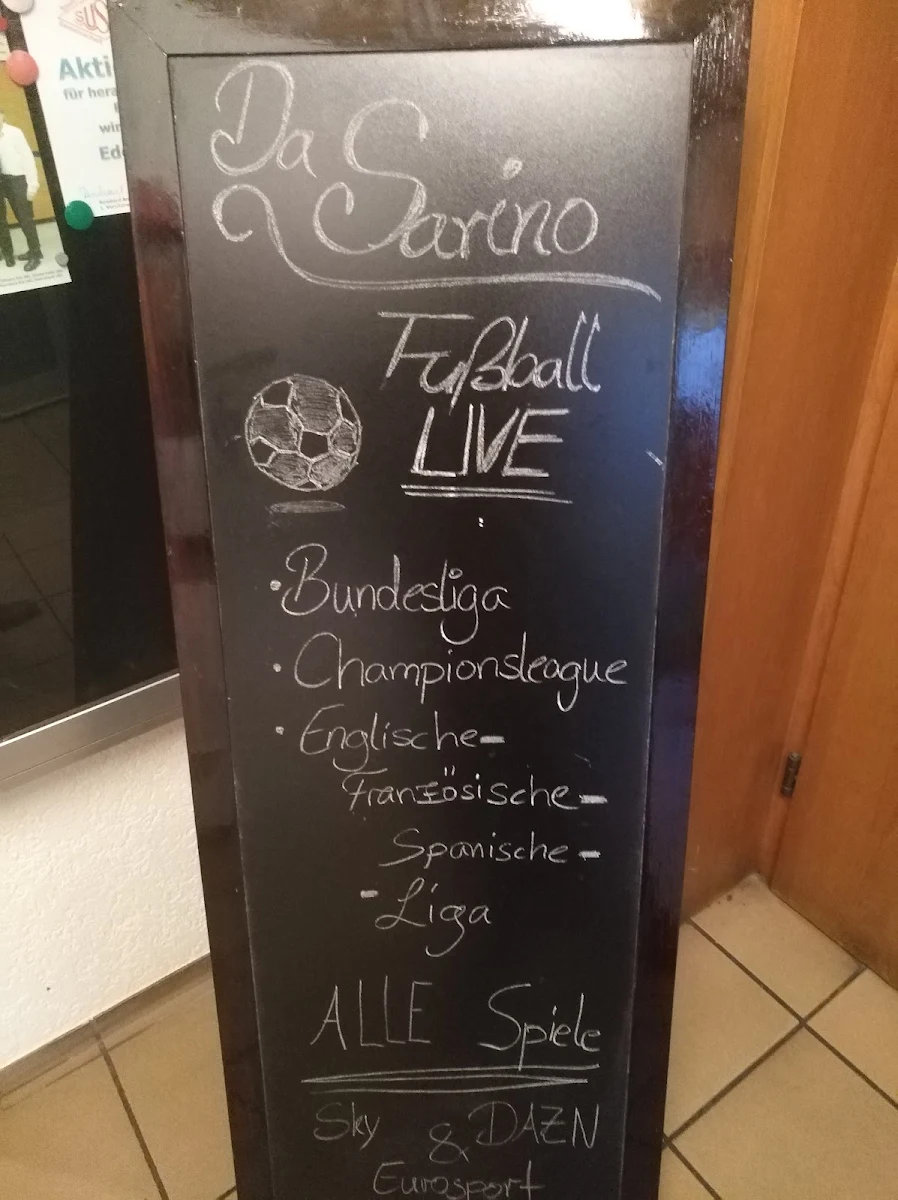 Da
Sarino
Fußball
LIVE
:
• Bundesliga
• Championsleague
• Englische-
Französische-
Spanische-
- Liga
ALLE Spiele
Sky & DAZN
Eurosport
SUS
Akti
für hera
wir
Ed